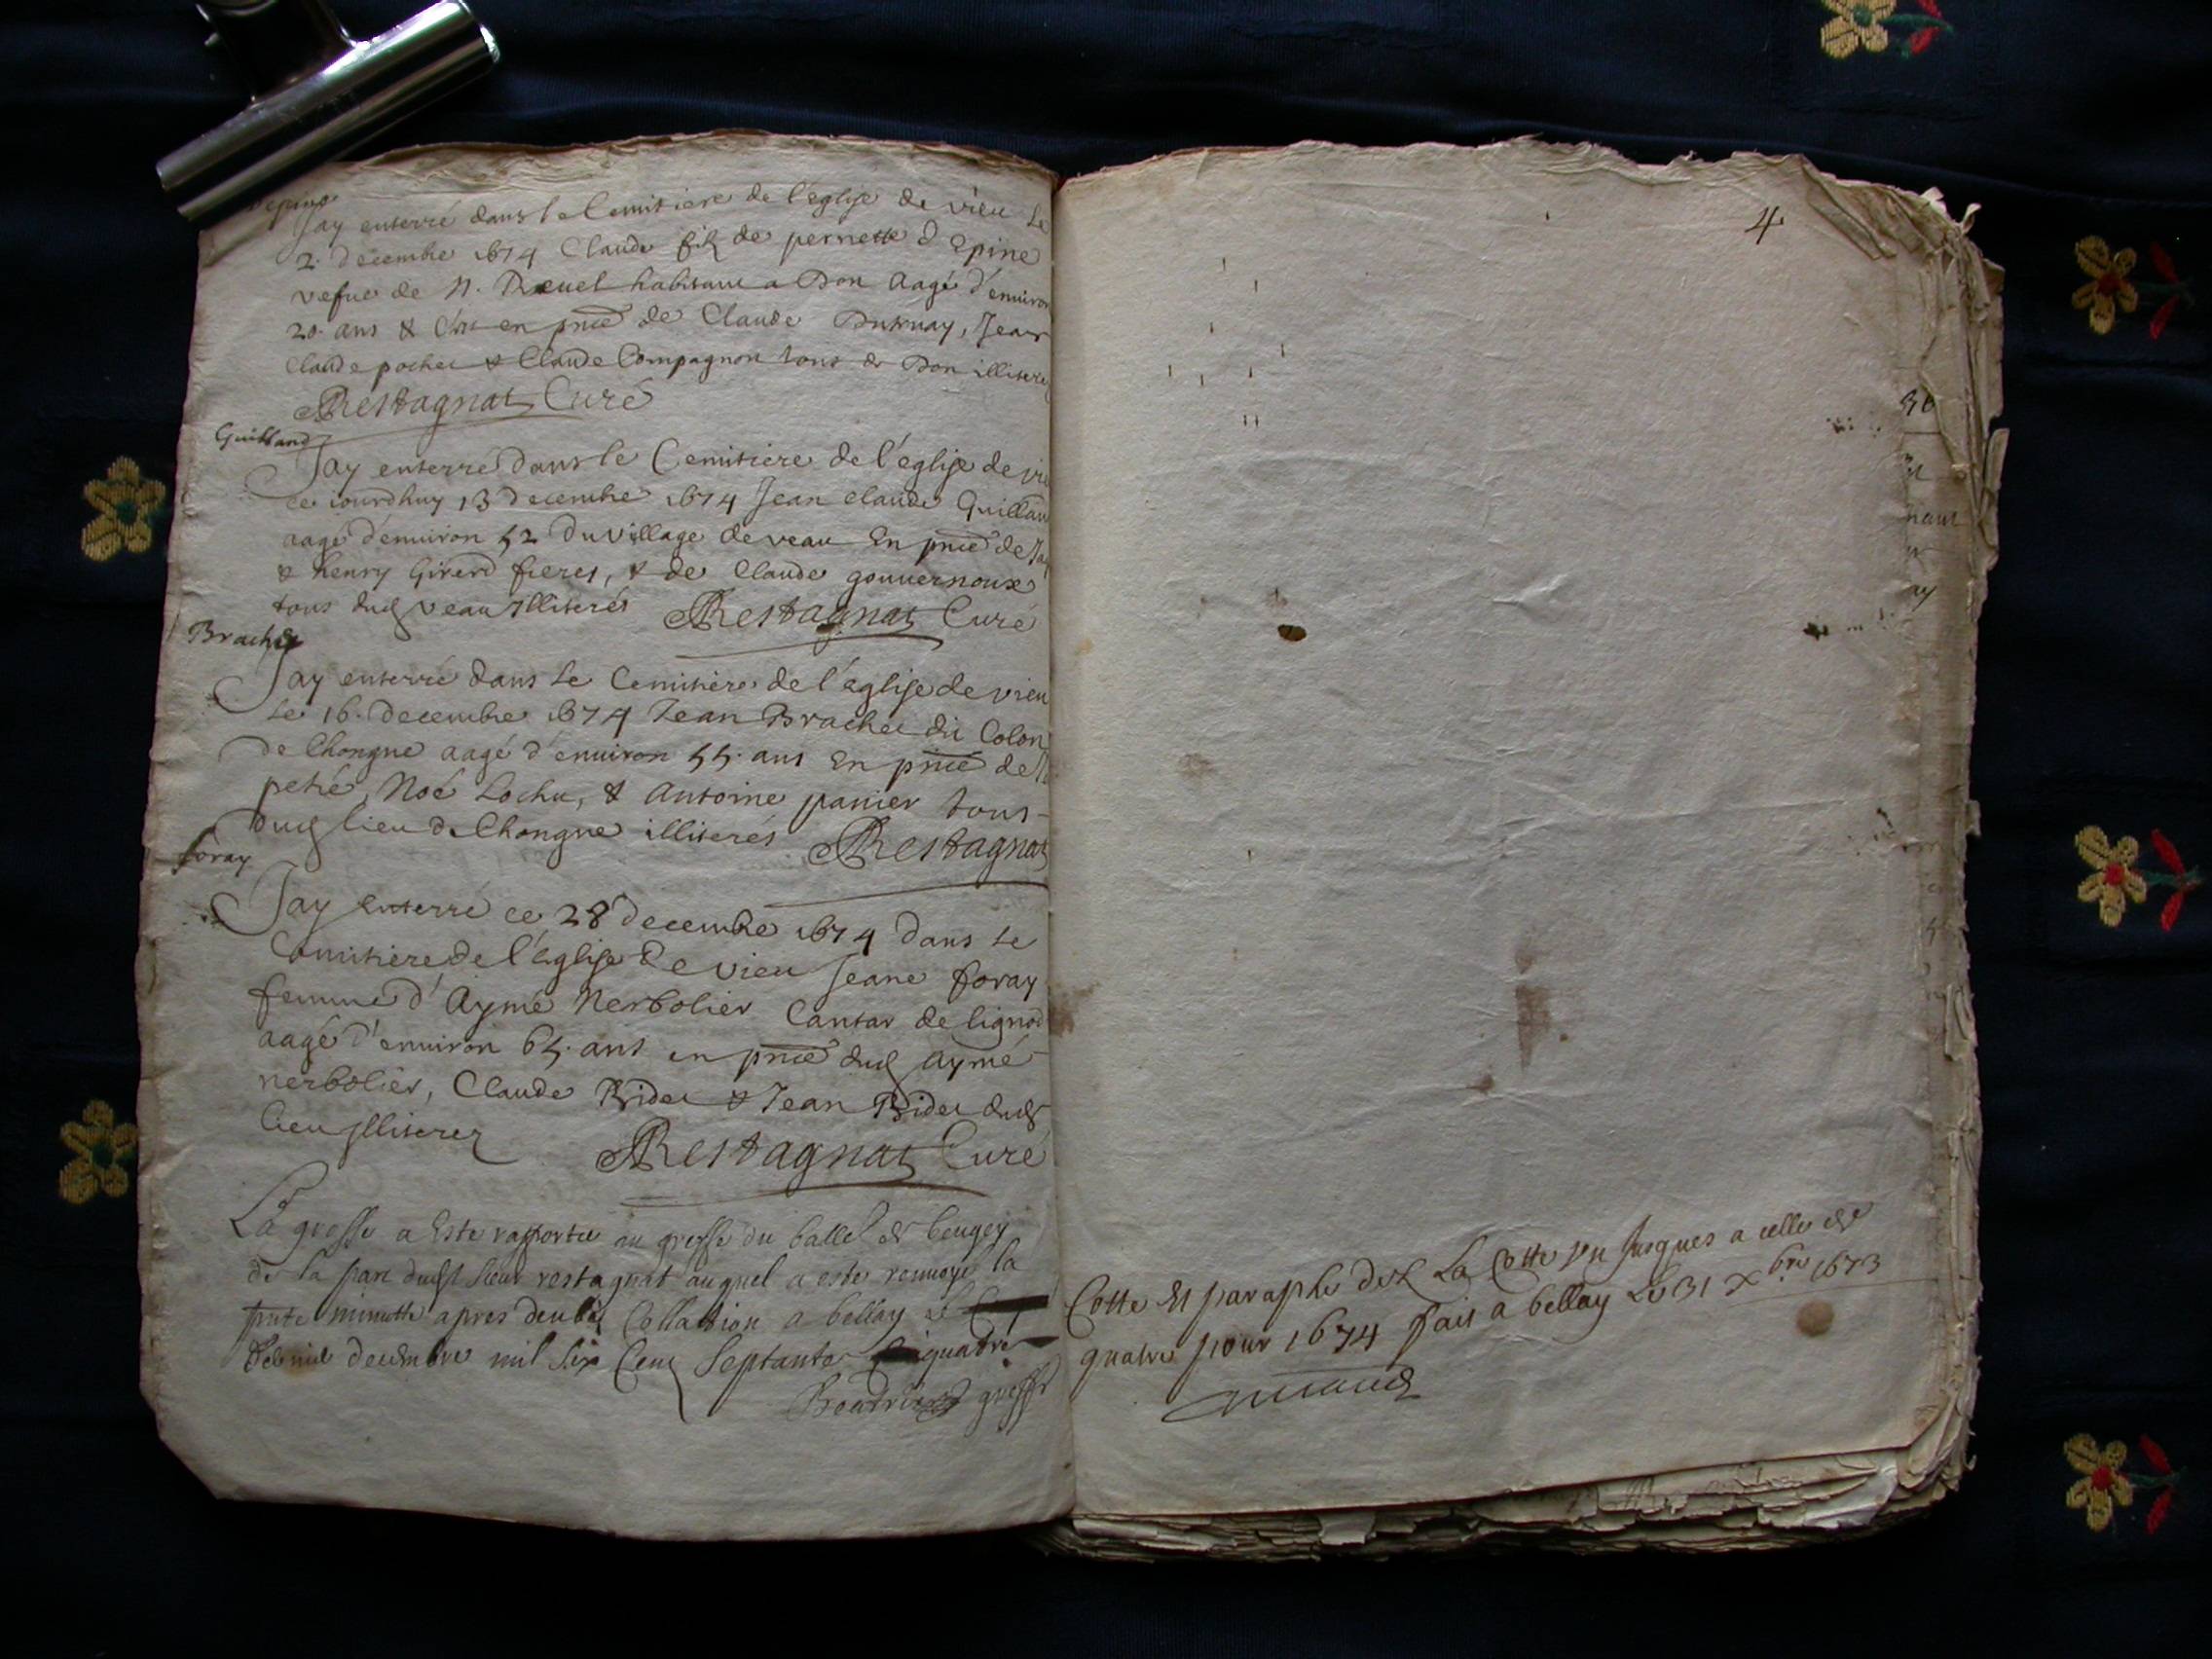 Jay enterré dans le Cemitiere de l'eglise de vieu Le
2. decembre 1674 Claude fils de pernette d Epine
vefue de N. Reuel habitant a Don aagé d'enuiron
20. ans & en pnce de Claude Dutruay, Jean
Claude pochet & Claude Compagnon tous de Don illiteré
Restagnat Curé
Guilland
Jay enterré dans le Cemitiere de l'église de
ce iourdhuy 13 decembre 1674 Jean claude Guillan
aagé d'enuiron 52 du village de veau En pnce de
& henry Girerd freres, & de Claude gouuernoux
tous dud veau Illiterés Restagnat Curé
Brachet
Jay enterré dans Le Cemitiere de l'église de vieu
Le 16. decembre 1674 Jean Brachet dit Colon
de Chongne aagé d'enuiron 55. ans En pnce de
petré, Noé Lochu, & Antoine panier tous
dud lieu de Chongne illiterés Restagnat
foray
Jay enterré ce 28 decembre 1674 dans Le
Cemitiere de l'église de vieu Jeane foray
femme d'Aymé Nerbolier Cantar de lignod
aagé d'enuiron 65. ans en pnce dud Aymé
nerbolier, Claude Bidet & Jean Bidet dud
lieu Illiterez Restagnat Curé
La grosse a Este rapportee au greffe du balle de beugey
de la part dudit sieur restagnat auquel a este renuoyé la
pnte minutte apres deube Collation a belley le
decembre mil six Cent Septante quatre
greff
4
Cotte Et paraphe des La Cotte un Jusques a celle de
quatre pour 1674 fait a belley Le 31 xbre 1673